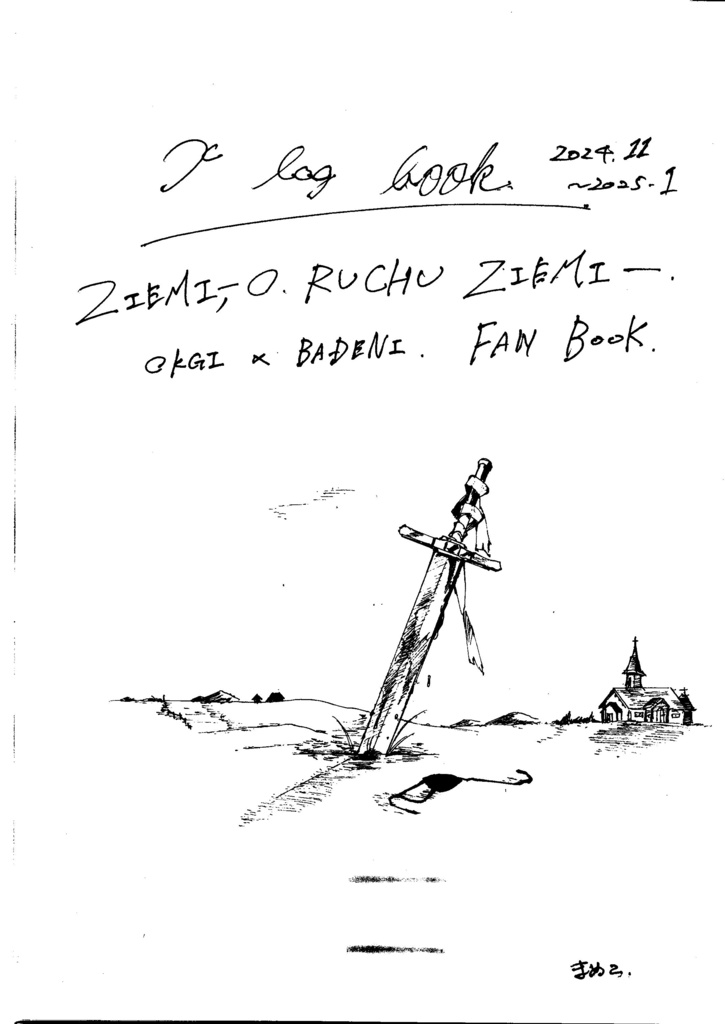 X log book. 2024.11
~2025.1
ZIEMI,-O. RUCHU ZIEMI-.
OKGI × BADENI. FAN BOOK.
まめこ.